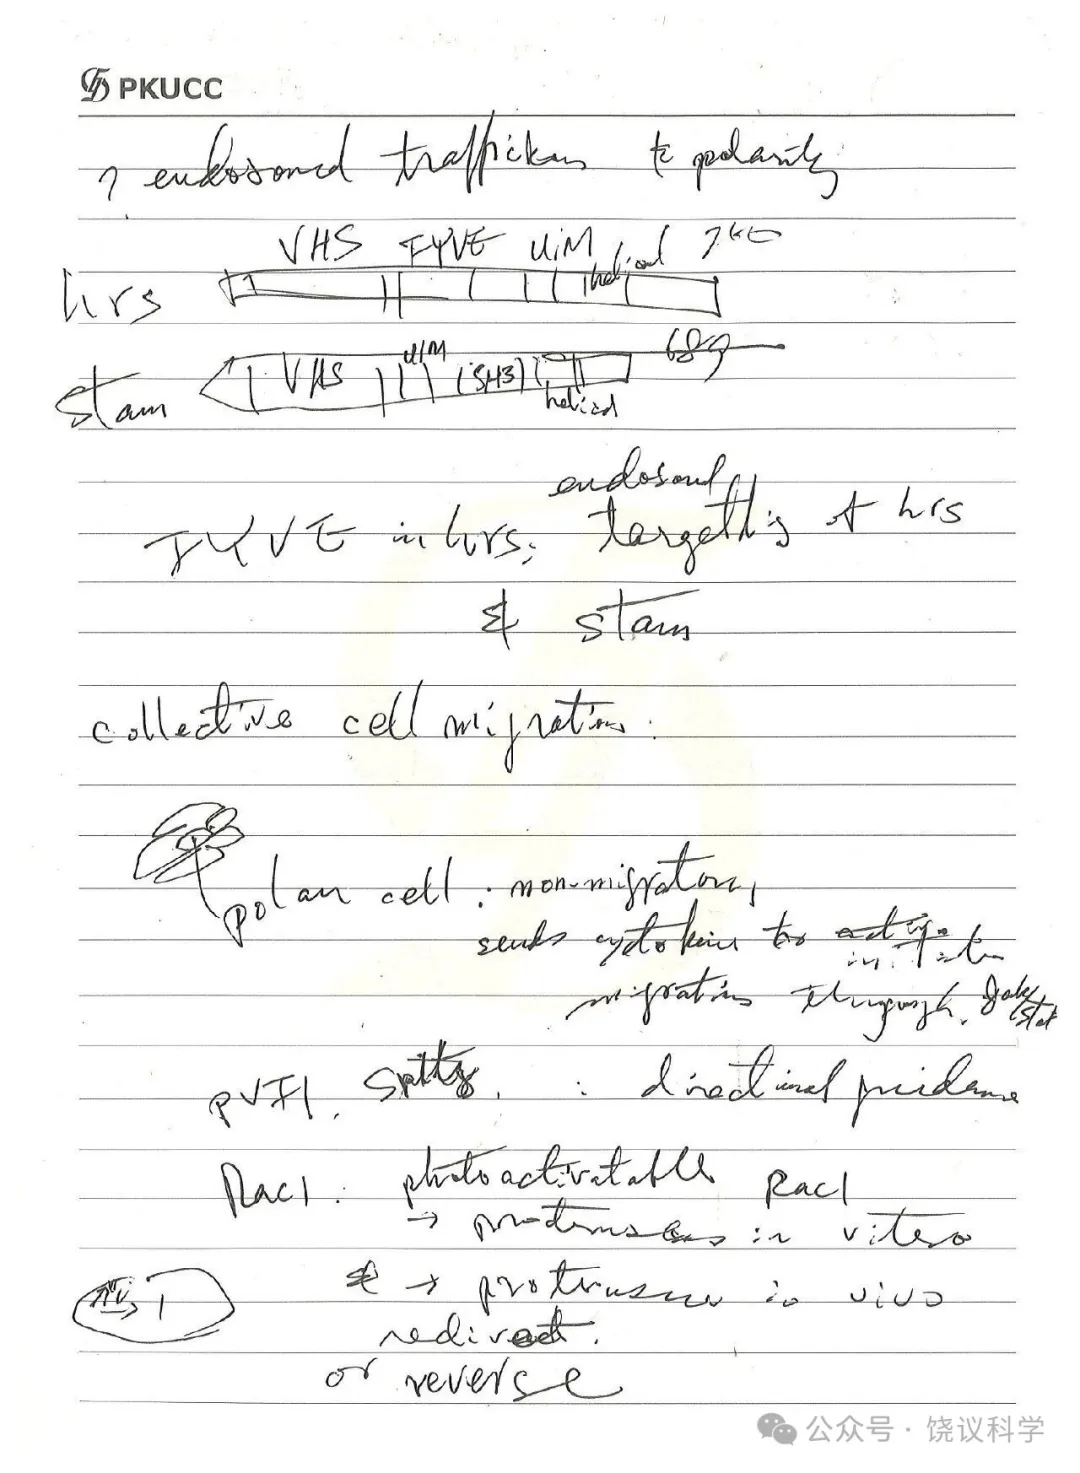 PKUCC
? endosomal trafficking to polarity
VHS FYVE UIM helical
hrs
VHS UIM (SH3) helical 689
stam
endosomal
FYVE in hrs: targetting of hrs
& stam
collective cell migration:
polar cell: non-migratory,
sends cytokine to initiate
migration through Jak/Stat
PVF1, Spitz : directional guidance
Rac1: photoactivatable Rac1
→ protrusions in vitero
→ protrusion in vivo
redirect.
or reverse
公众号·饶议科学